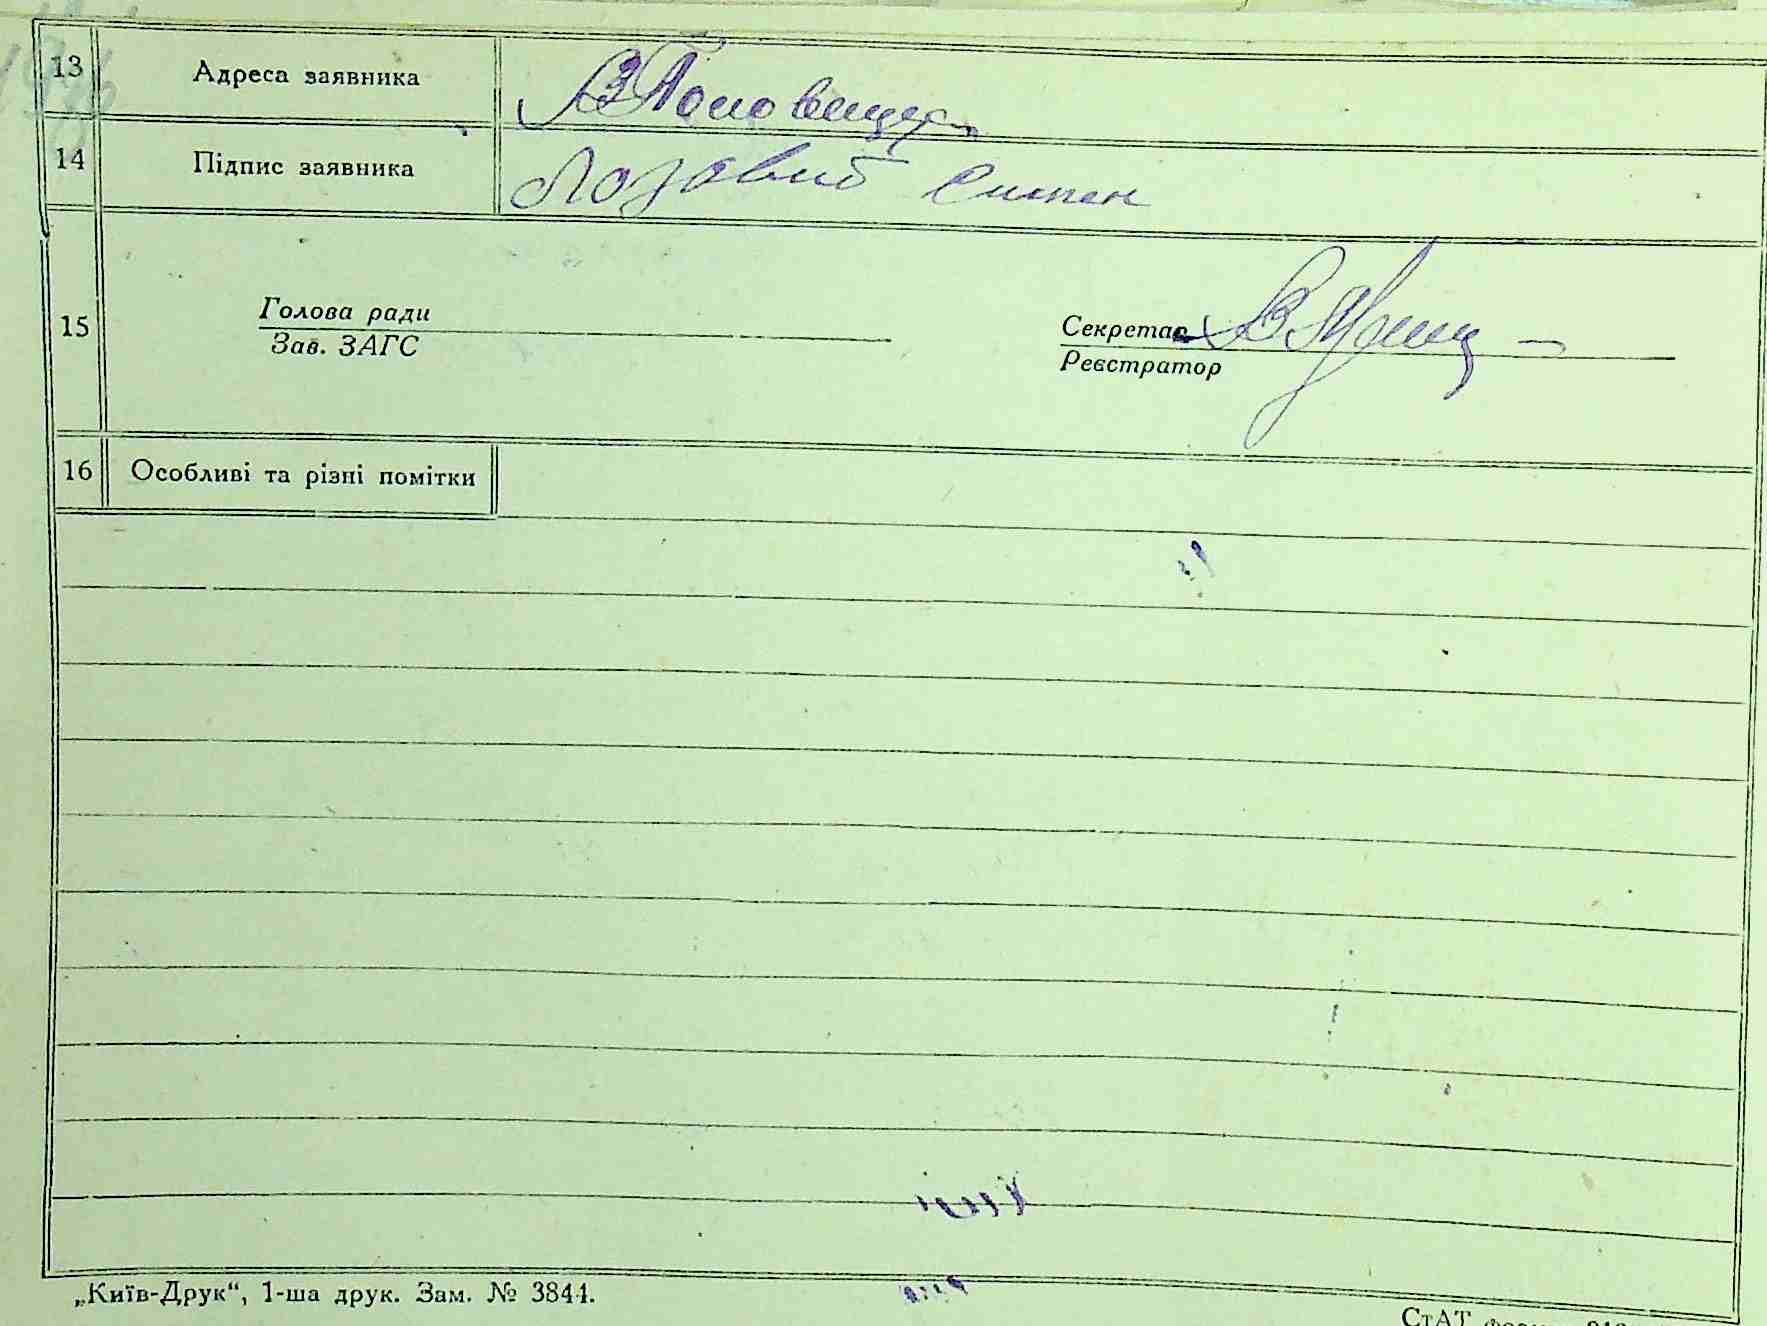 13 Адреса заявника В Половецьке
14 Підпис заявника Лозовий Степан
15 Голова ради Секретар
Зав. ЗАГС Реєстратор
16 Особливі та різні помітки
„Київ-Друк“, 1-ша друк. Зам. № 3844.
СтАТ